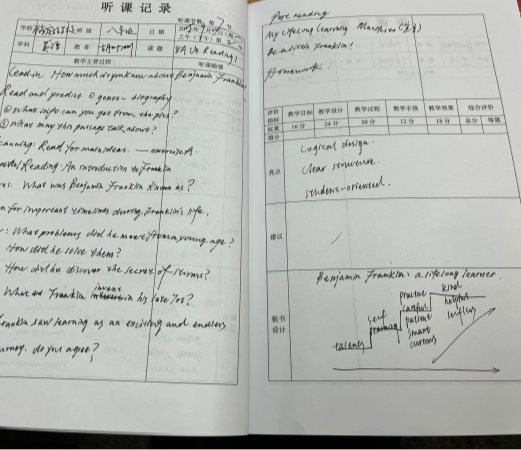 听课记录
听课节数：第 节
学校 班级 八年级
上午（下午）第 2 节
学科 英语 教者 课题 8A U5 Reading 1
教学主要过程 听课随感
Lead in How much do you know about Benjamin Franklin
Read and predict ① genre - biography
② What info can you get from the pics?
③ What may this passage talk about?
canning: Read for main ideas. — exercise A.
Reading: An introduction to Franklin
1. What was Benjamin Franklin known as?
n for important timelines during Franklin's life.
: What problems did he meet from a young age?
How did he solve them?
How did he discover the secret of storms?
What did Franklin invent in his late 70s?
Franklin saw learning as an exciting and endless
urney. do you agree?
Post reading
My lifelong learning
Be a sixth Franklin!
Homework
评价指标 教学目标 教学设计 教学过程 教学手段 教学效果 综合评价
权重 16分 24分 30分 12分 18分 总分 等第
得分
亮点
Logical design.
Clear structure.
student-oriented.
建议
板书设计
Benjamin Franklin: a lifelong learner
talents
self
learning
practise
careful
patient
smart
curious
kind
helpful
selfless